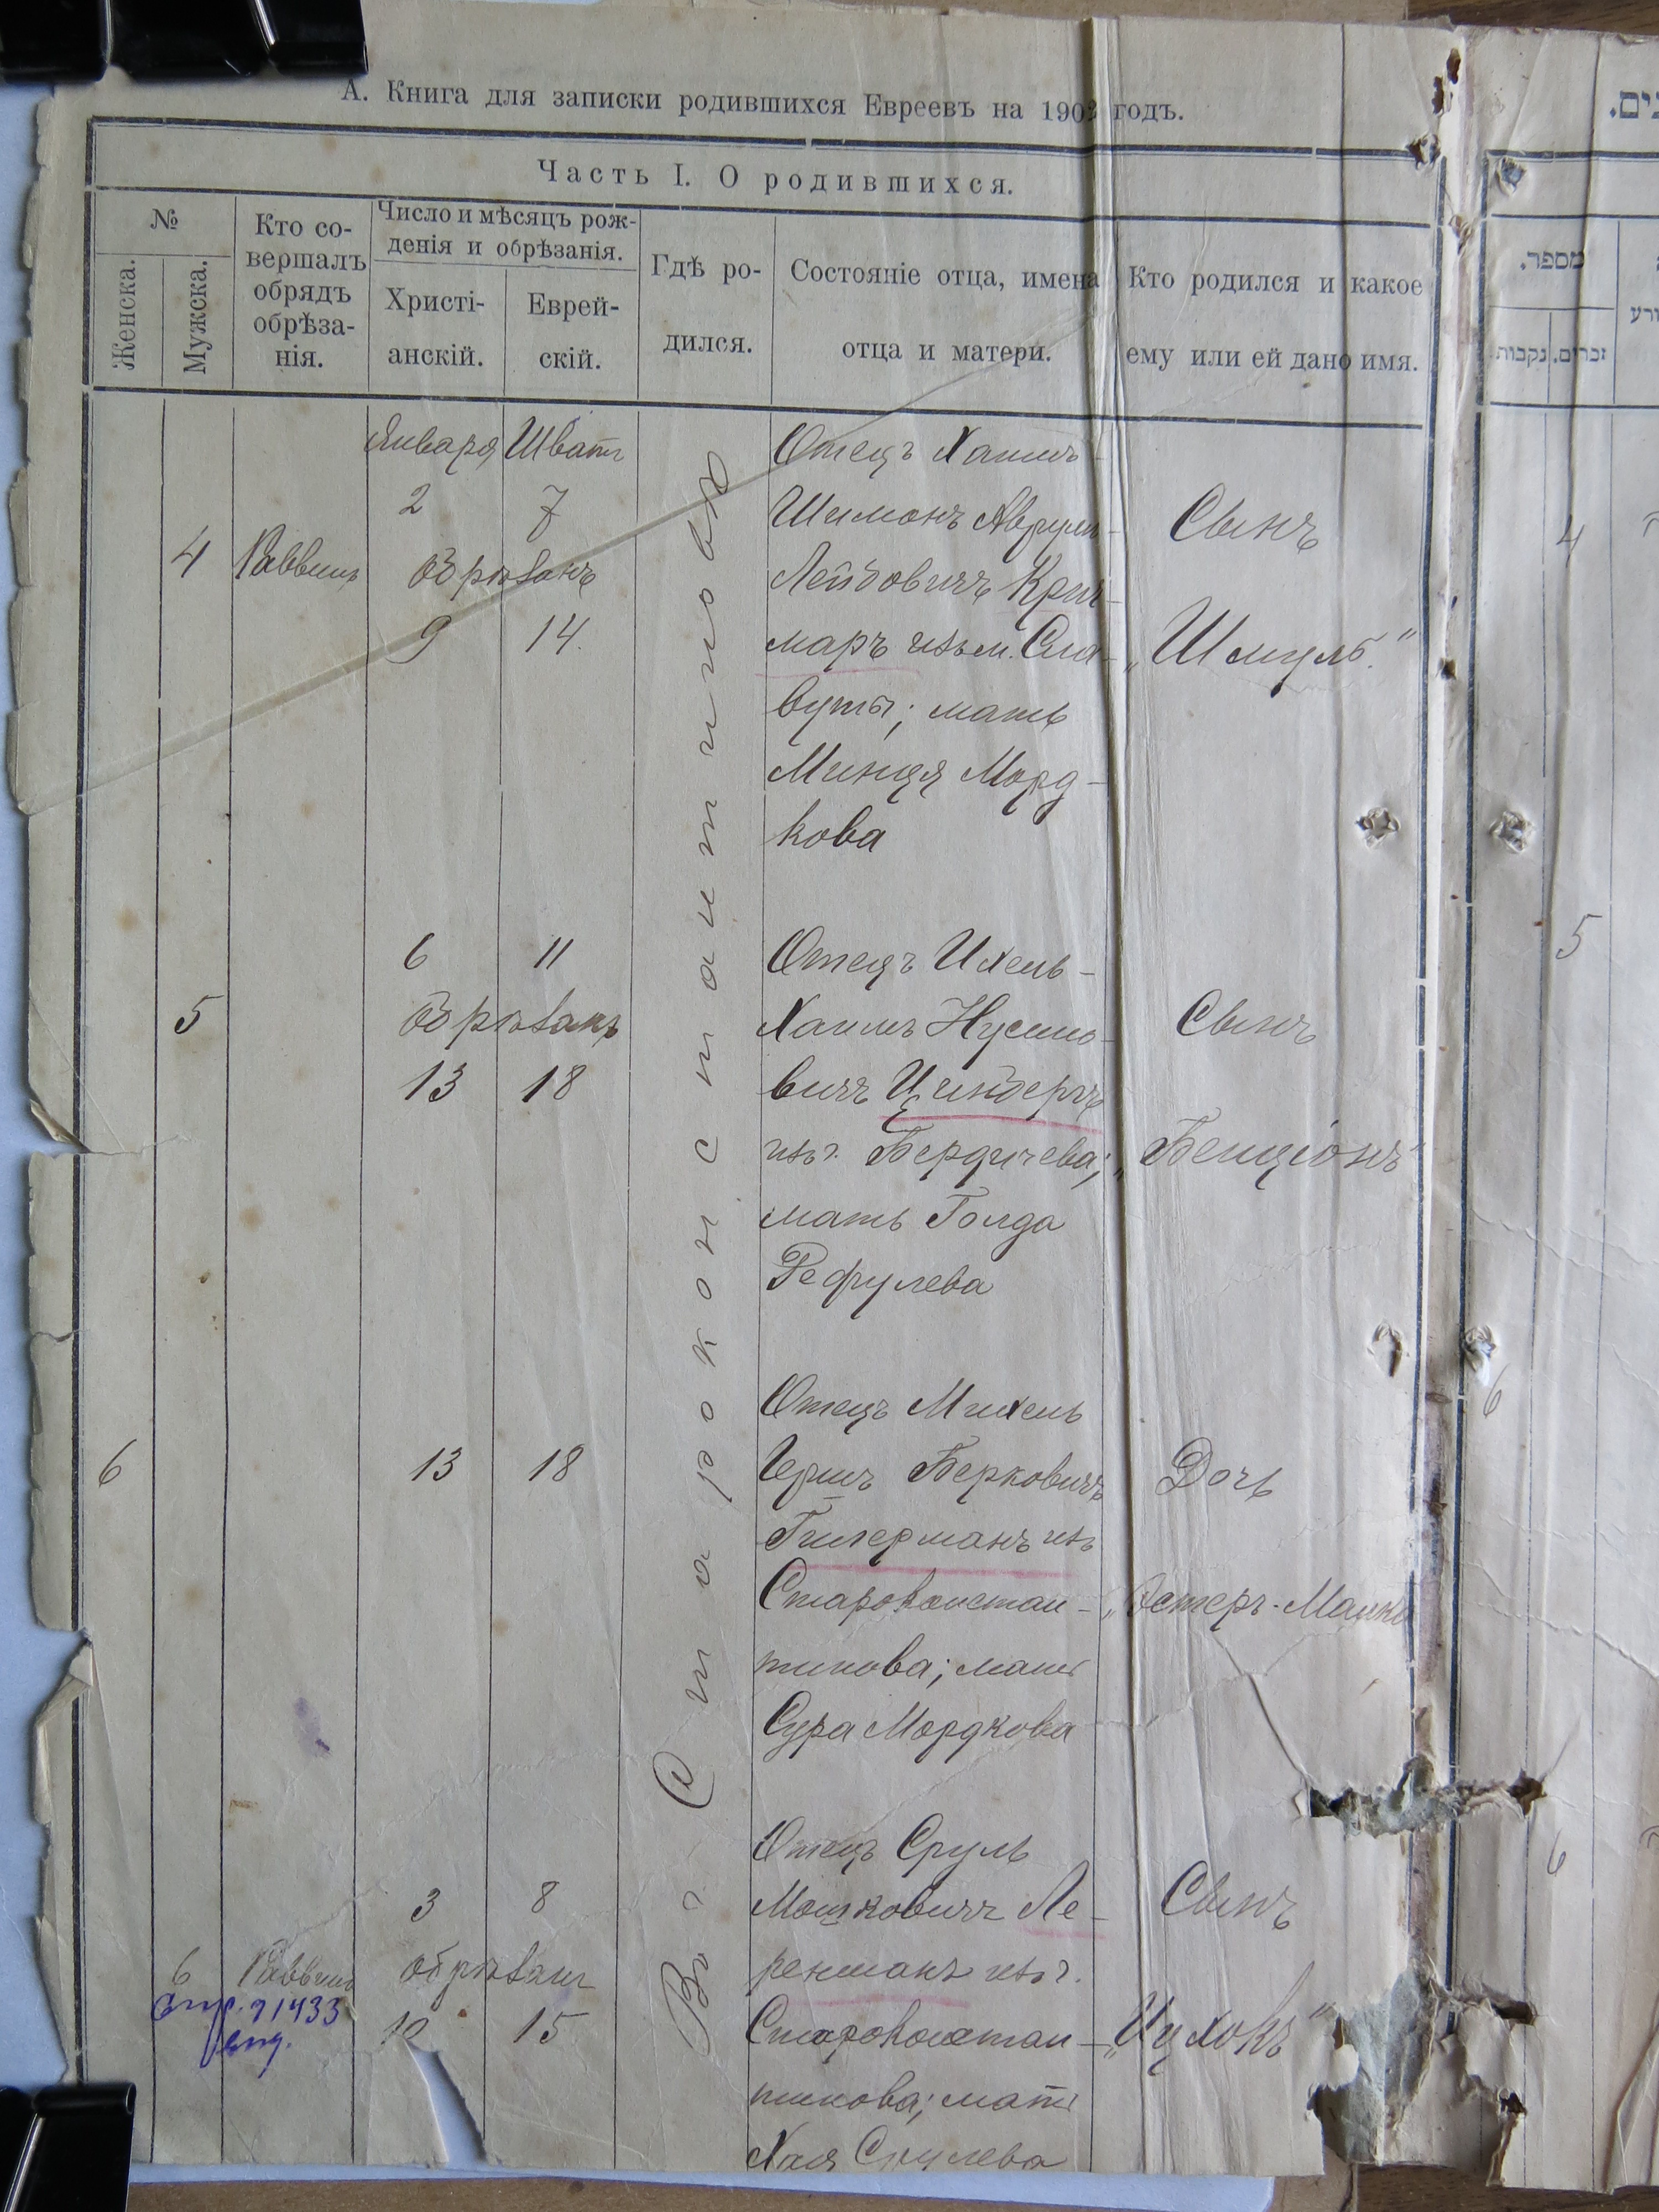 А. Книга для записки родившихся Евреевъ на 1903 годъ.
Часть I. О родившихся.
№
Женска.
Мужска.
Кто со-
вершалъ
обрядъ
обрѣза-
нія.
Число и мѣсяцъ рож-
денія и обрѣзанія.
Христі-
анскій.
Еврей-
скій.
Гдѣ ро-
дился.
Состояніе отца, имена
отца и матери.
Кто родился и какое
ему или ей дано имя.
4
Раввинъ
Января Шватъ
2 7
обрѣзанъ
9 14.
Въ г. Староконстантиновѣ
Отецъ Хаимъ-
Шимонъ Аврумъ-
Лейбовичъ Крич-
маръ изъ м. Сла-
вуты; мать
Минця Морд-
кова
Сынъ
„Шмуль."
5
6 11
обрѣзанъ
13 18
Отецъ Ихель-
Хаимъ Нусино-
вичъ Циндеръ
изъ г. Бердичева;
мать Голда
Рефулева
Сынъ
„Бенціонъ"
6
13 18
Отецъ Михель
Герш Берковичъ
Гитерманъ изъ
Староконстан-
тинова; мать
Сура Мордкова
Дочь
„Эстеръ-Малка
6
Раввинъ
3 8
обрѣзанъ
10 15
Отецъ Сруль
Мошковичъ Ле-
ренманъ изъ г.
Староконстан-
тинова; мать
Хая Срулева
Сынъ
„Ицхокъ"
91433
מספר.
זכרים.
נקבות
4
5
6
6